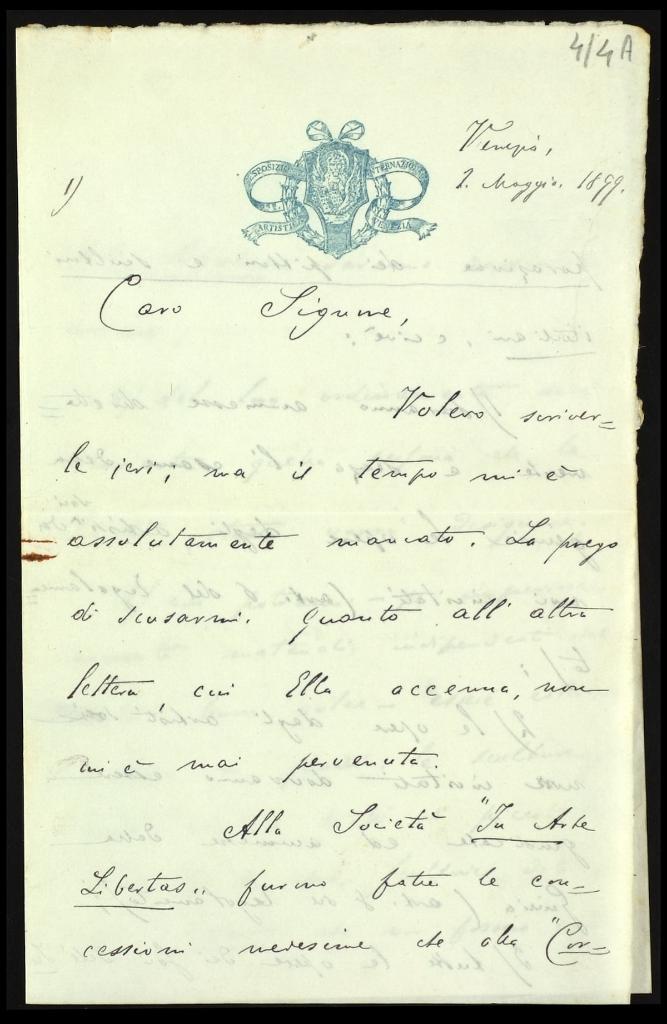 4/4A
ESPOSIZIONE INTERNAZIONALE
ARTISTICA VENEZIA
Venezia,
2. Maggio. 1899.
1)
Caro Signore,
Volevo scriver=
le jeri; ma il tempo mi è
assolutamente mancato. La prego
di scusarmi. Quanto all'altra
lettera, cui Ella accenna, non
mi è mai pervenuta.
Alla Società "In Arte
Libertas" furono fatte le con=
cessioni medesime che alla "Cor=